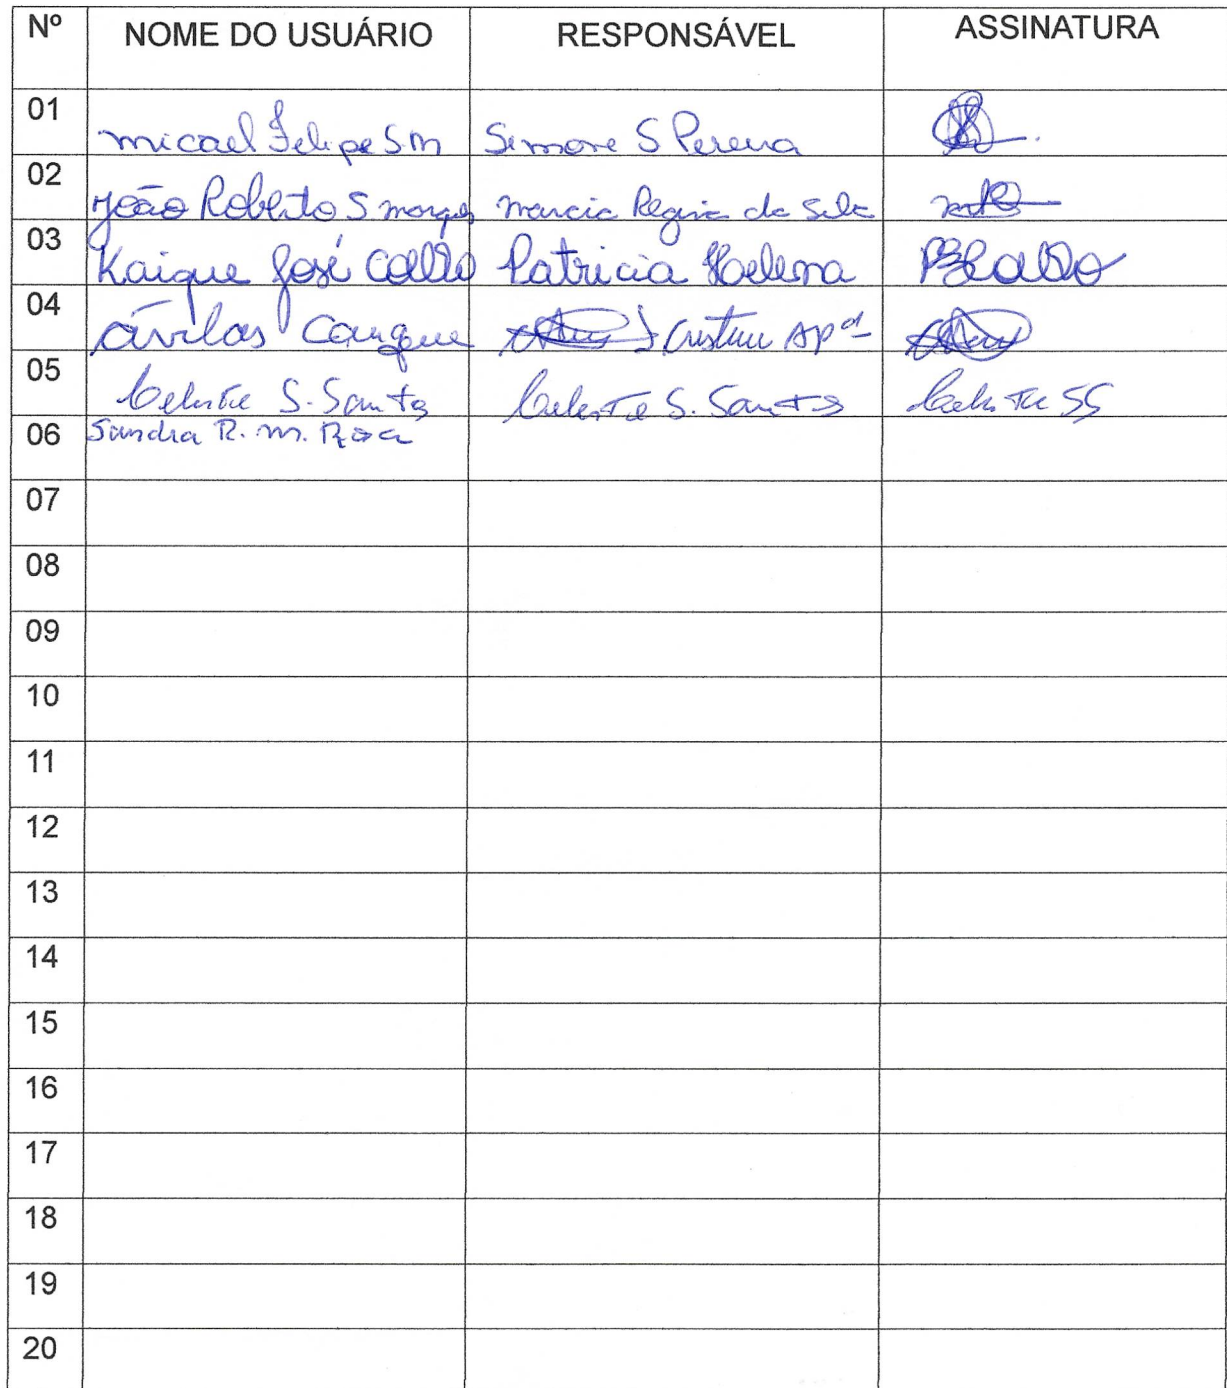 Nº NOME DO USUÁRIO RESPONSÁVEL ASSINATURA
01 micael Felipe S.M Simone S Pereira
02 João Roberto S marques marcia Regina da Silva
03 Kaique José Patricia Helena
04 Cristina Apª
05 Celeste S. Santos Celeste S. Santos Celeste SS
06 Sandra R. m.
07
08
09
10
11
12
13
14
15
16
17
18
19
20